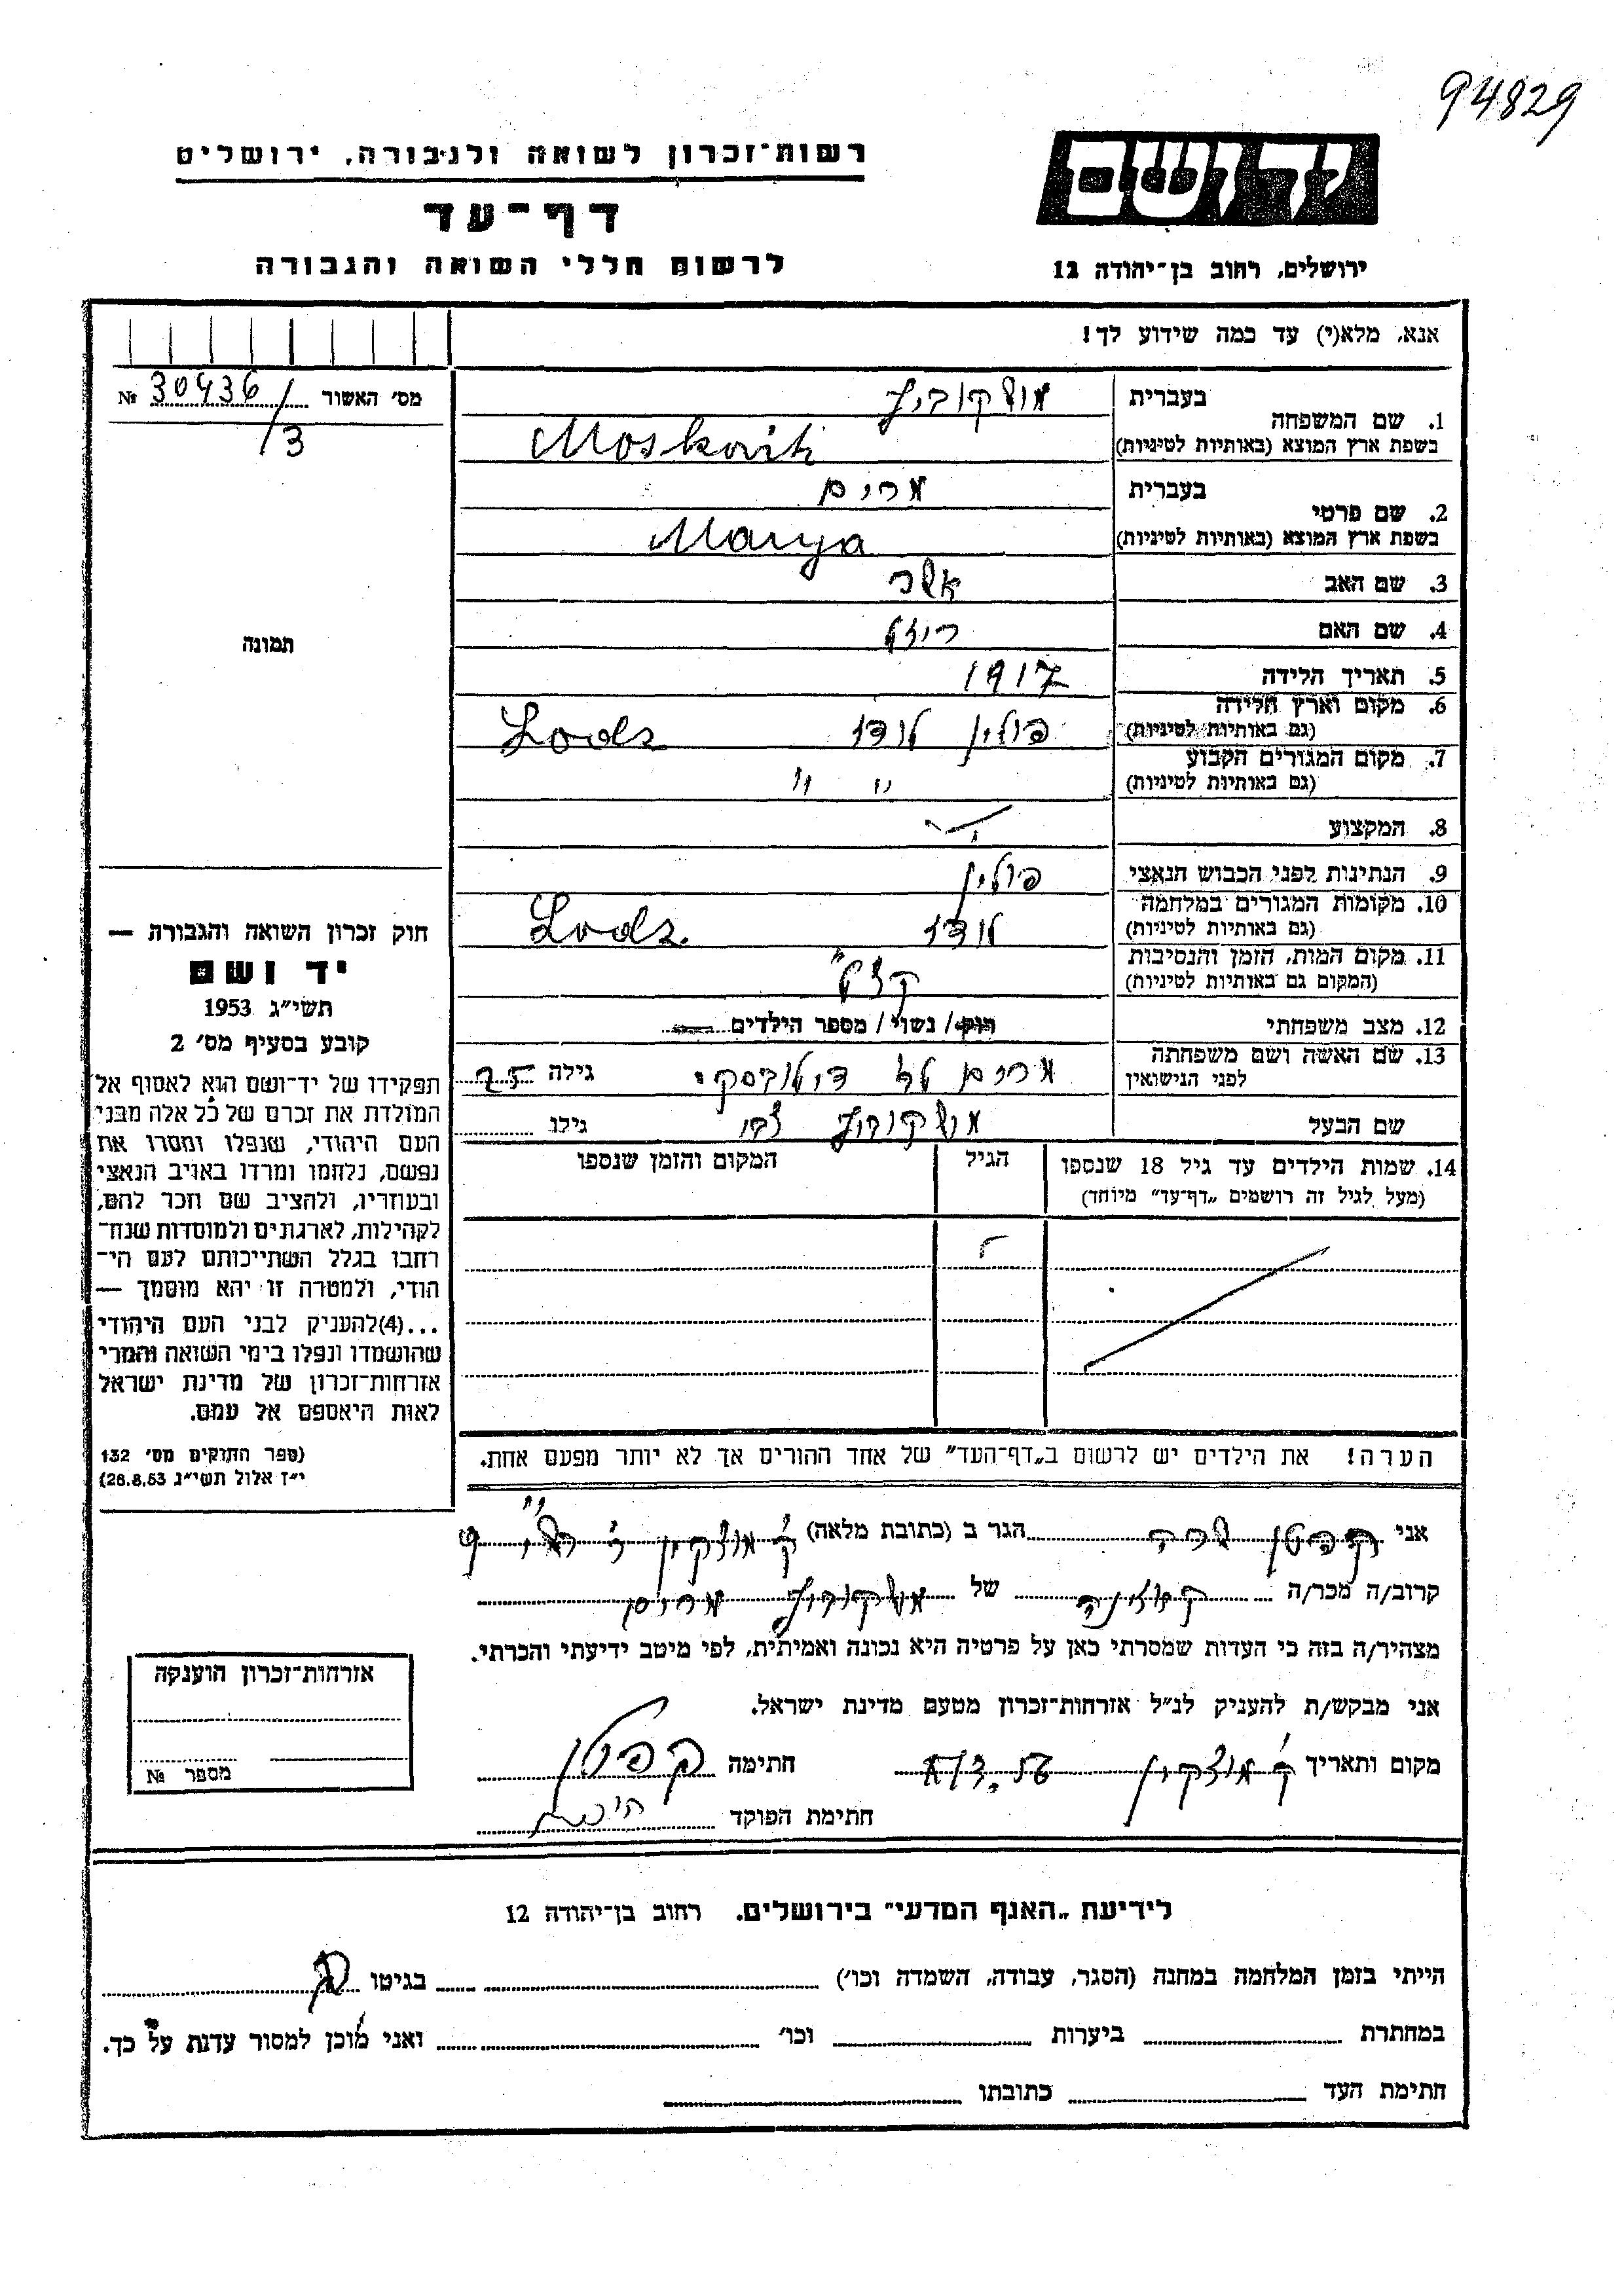 94829
יד ושם
רשות-זכרון לשואה ולגבורה, ירושלים
דף-עד
לרשום חללי השואה והגבורה
ירושלים, רחוב בן-יהודה 12
אנא, מלא(י) עד כמה שידוע לך!
מס' האשור 30436 №
/3
תמונה
בעברית מושקוביץ
1. שם המשפחה
בשפת ארץ המוצא (באותיות לטיניות) Moskovits
בעברית מרים
2. שם פרטי
בשפת ארץ המוצא (באותיות לטיניות) Marya
3. שם האב אשר
4. שם האם
5. תאריך הלידה 1917
6. מקום וארץ הלידה
(גם באותיות לטיניות) פולין לודז Lodz
7. מקום המגורים הקבוע
(גם באותיות לטיניות) " "
8. המקצוע
9. הנתינות לפני הכבוש הנאצי פולין
10. מקומות המגורים במלחמה
(גם באותיות לטיניות) לודז Lodz.
11. מקום המות, הזמן והנסיבות
(המקום גם באותיות לטיניות)
12. מצב משפחתי רוק/ נשוי/ מספר הילדים
13. שם האשה ושם משפחתה
לפני הנישואין מרים גילה 25
שם הבעל מושקוביץ צבי גילו
14. שמות הילדים עד גיל 18 שנספו
(מעל לגיל זה רושמים „דף-עד" מיוחד)
הגיל
המקום והזמן שנספו
חוק זכרון השואה והגבורה —
יד ושם
תשי"ג 1953
קובע בסעיף מס' 2
תפקידו של יד-ושם הוא לאסוף אל
המולדת את זכרם של כל אלה מבני
העם היהודי, שנפלו ומסרו את
נפשם, נלחמו ומרדו באויב הנאצי
ובעוזריו, ולהציב שם וזכר להם,
לקהילות, לארגונים ולמוסדות שנח-
רחבו בגלל השתייכותם לעם הי-
הודי, ולמטרה זו יהא מוסמך —
...(4)להעניק לבני העם היהודי
שהושמדו ונפלו בימי השואה והמרי
אזרחות-זכרון של מדינת ישראל
לאות היאספם אל עמם.
(ספר החוקים מס' 132
י"ז אלול תשי"ג 28.8.53)
הערה! את הילדים יש לרשום ב„דף-העד" של אחד ההורים אך לא יותר מפעם אחת.
אני קפטן הגר ב (כתובת מלאה) ק' מוצקין
קרוב/ה מכר/ה של מושקוביץ מרים
מצהיר/ה בזה כי העדות שמסרתי כאן על פרטיה היא נכונה ואמיתית, לפי מיטב ידיעתי והכרתי.
אני מבקש/ת להעניק לנ"ל אזרחות-זכרון מטעם מדינת ישראל.
מקום ותאריך ק' מוצקין חתימה קפטן
חתימת הפוקד
אזרחות-זכרון הוענקה
מספר №
לידיעת „האגף המדעי" בירושלים. רחוב בן-יהודה 12
הייתי בזמן המלחמה במחנה (הסגר, עבודה, השמדה וכו') בגיטו
במחתרת ביערות וכו' ואני מוכן למסור עדות על כך.
חתימת העד כתובתו